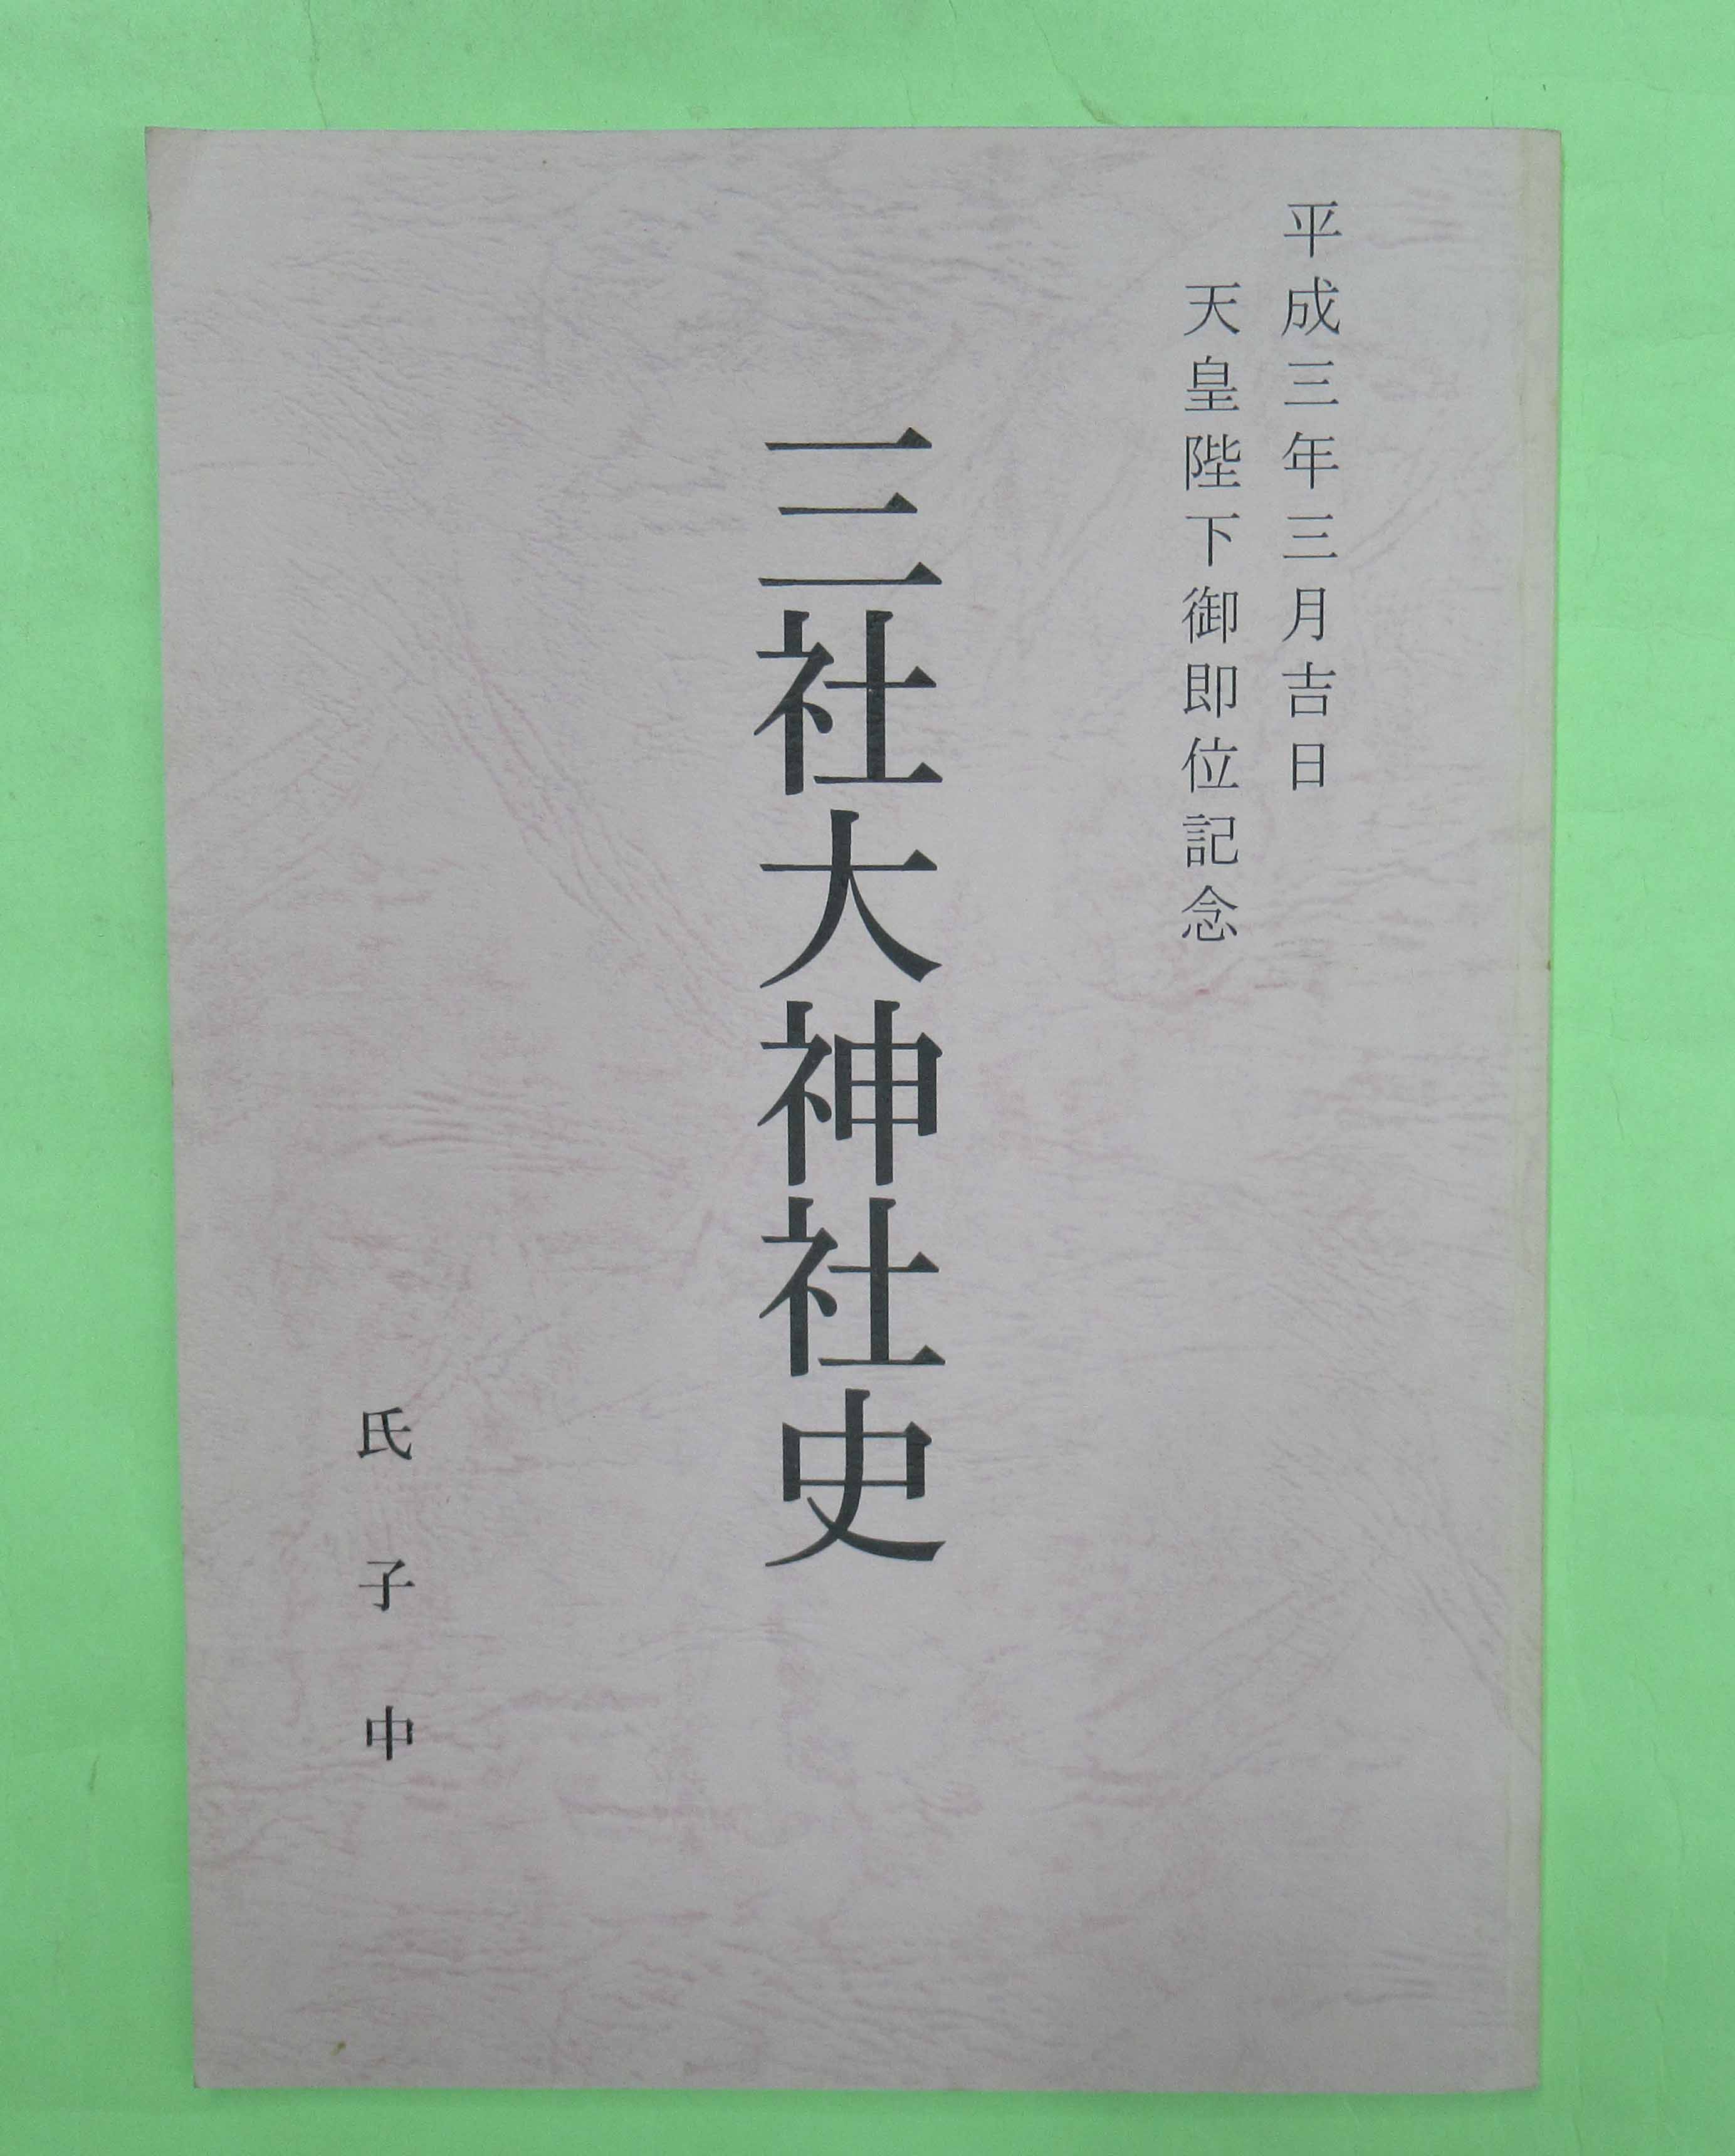 平成三年三月吉日
天皇陛下御即位記念
三社大神社史
氏子中